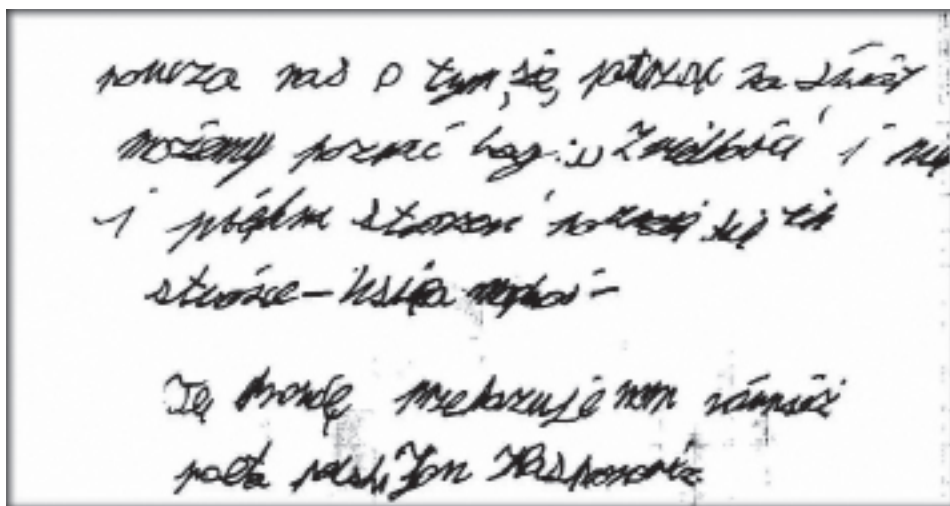 poucza nas o tym, się, patrząc na świat
możemy poznać i
i piękna stworzeń poznaje się ich
stwórcę – księga mądrości –
Tę prawdę przekazuje nam również
poeta polski Jan Kasprowicz